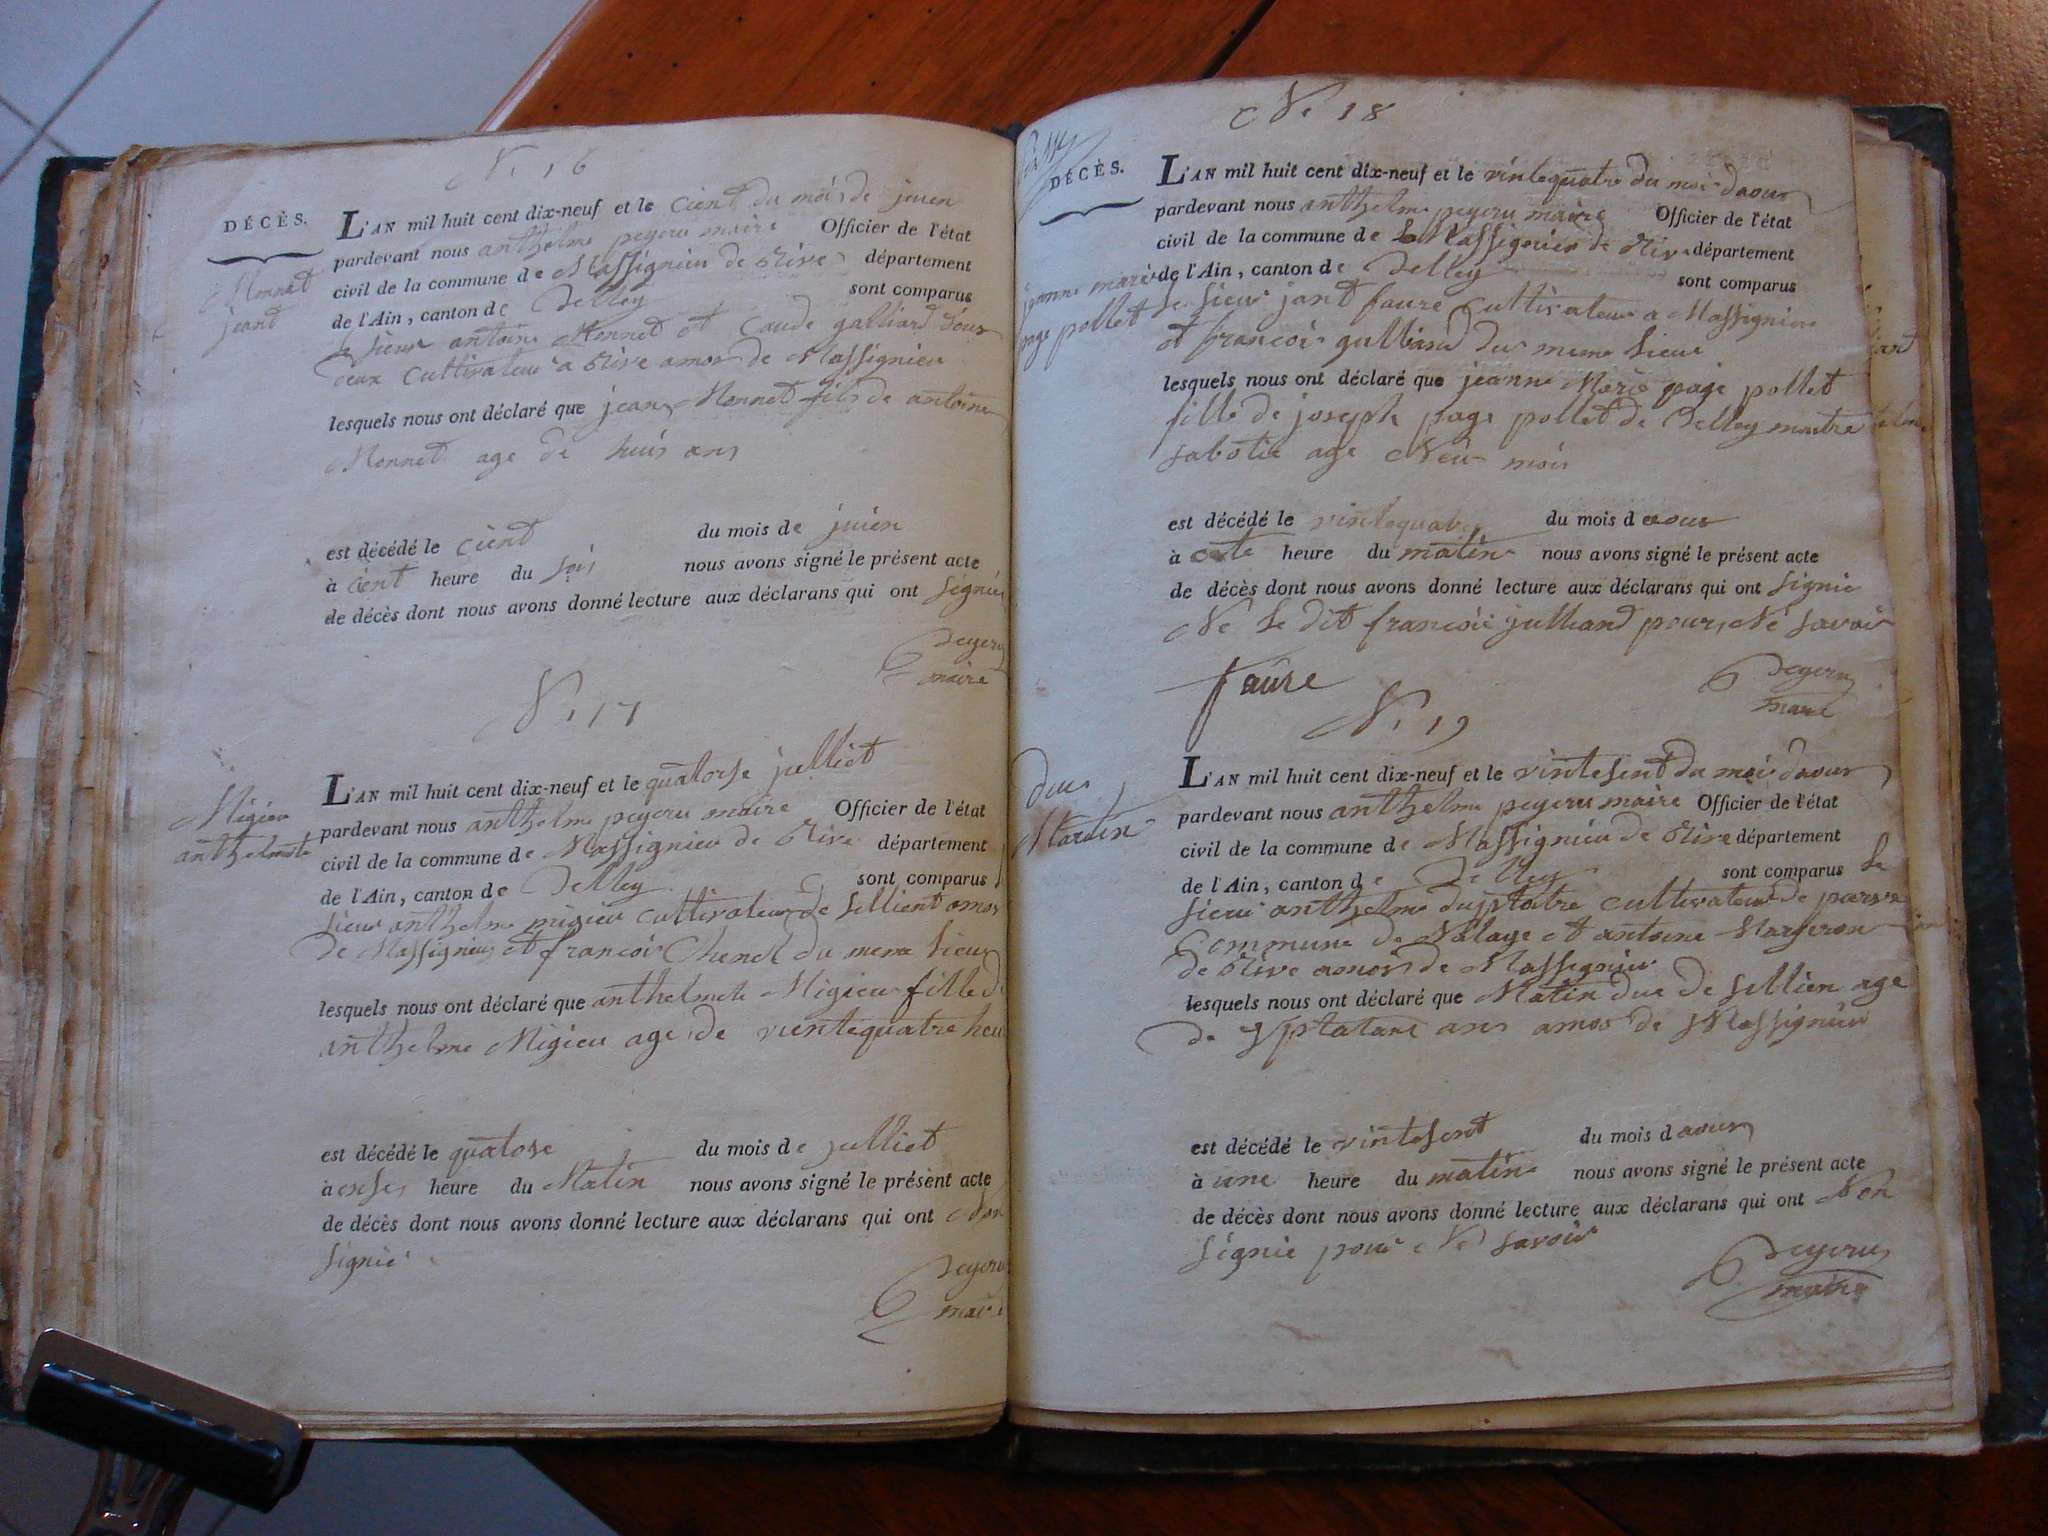 N. 16
DÉCÈS.
L'AN mil huit cent dix-neuf et le cient du mois de juien
pardevant nous anthelme peyeru maire Officier de l'état
civil de la commune de Massignieu de Rive département
de l'Ain, canton de Belley sont comparus
Monnet
jeant
le sieur antoine Monnet et Caude galliard
deux cultivateur a Rive amos de Massignieu
lesquels nous ont déclaré que jean Monnet fils de antoine
Monnet age de huis ans
est décédé le cient du mois de juien
à cient heure du soir nous avons signé le présent acte
de décès dont nous avons donné lecture aux déclarans qui ont signié
Peyeru
maire
N. 17
Migieu
anthelmete
L'AN mil huit cent dix-neuf et le quatorse julliet
pardevant nous anthelme peyeru maire Officier de l'état
civil de la commune de Massignieu de Rive département
de l'Ain, canton de Belley sont comparus
sieur anthelme migieu cultivateur de sellient amos
de Massignieu et francoir du meme lieu
lesquels nous ont déclaré que anthelmete Migieu fille d
anthelme Migieu age de vientequatre heu
est décédé le quatorse du mois de julliet
à onse heure du Matin nous avons signé le présent acte
de décès dont nous avons donné lecture aux déclarans qui ont Non
signié
Peyeru
maire
N. 18
DÉCÈS.
L'AN mil huit cent dix-neuf et le vintequatre du mois daout
pardevant nous anthelme peyeru maire Officier de l'état
civil de la commune de Massignieu de Rive département
de l'Ain, canton de Belley sont comparus
jeanne marie
page pollet
le sieur jant faure cultivateur a Massignieu
et francoir gulliand du meme lieu
lesquels nous ont déclaré que jeanne Marie page pollet
fille de joseph page pollet de Belley maitre
sabotie age Neu mois
est décédé le vintequatre du mois d aout
à heure du matin nous avons signé le présent acte
de décès dont nous avons donné lecture aux déclarans qui ont signié
Ne le dit francoir julliand pour Né savoir
faure
Peyeru
maire
N. 19
duc
Martin
L'AN mil huit cent dix-neuf et le vintesent du mois daout
pardevant nous anthelme peyeru maire Officier de l'état
civil de la commune de Massignieu de Rive département
de l'Ain, canton de Belley sont comparus le
sieur anthelme cultivateur de parve
Commune de Nalage et antoine Marjeron
de Rive amos de Massignieu
lesquels nous ont déclaré que Matin duc de sellien age
de ans amos de Massignieu
est décédé le vintesent du mois d aout
à une heure du matin nous avons signé le présent acte
de décès dont nous avons donné lecture aux déclarans qui ont Non
signié pour Ne savoir
Peyeru
maire